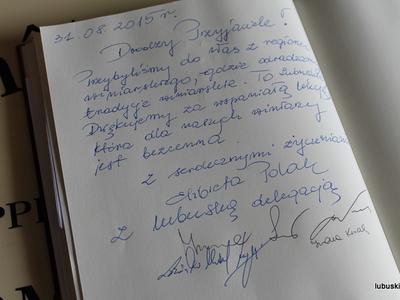 31.08.2015 r.
Drodzy Przyjaciele!
Przybyliśmy do Was z regionu
winiarskiego, gdzie odradzamy
tradycje winiarskie. To
Dziękujemy za wspaniałą lekcję
która dla naszych winiarzy
jest bezcenna.
Z serdecznymi życzeniami
Elżbieta Polak
z lubuską delegacją
PPI
lubuski